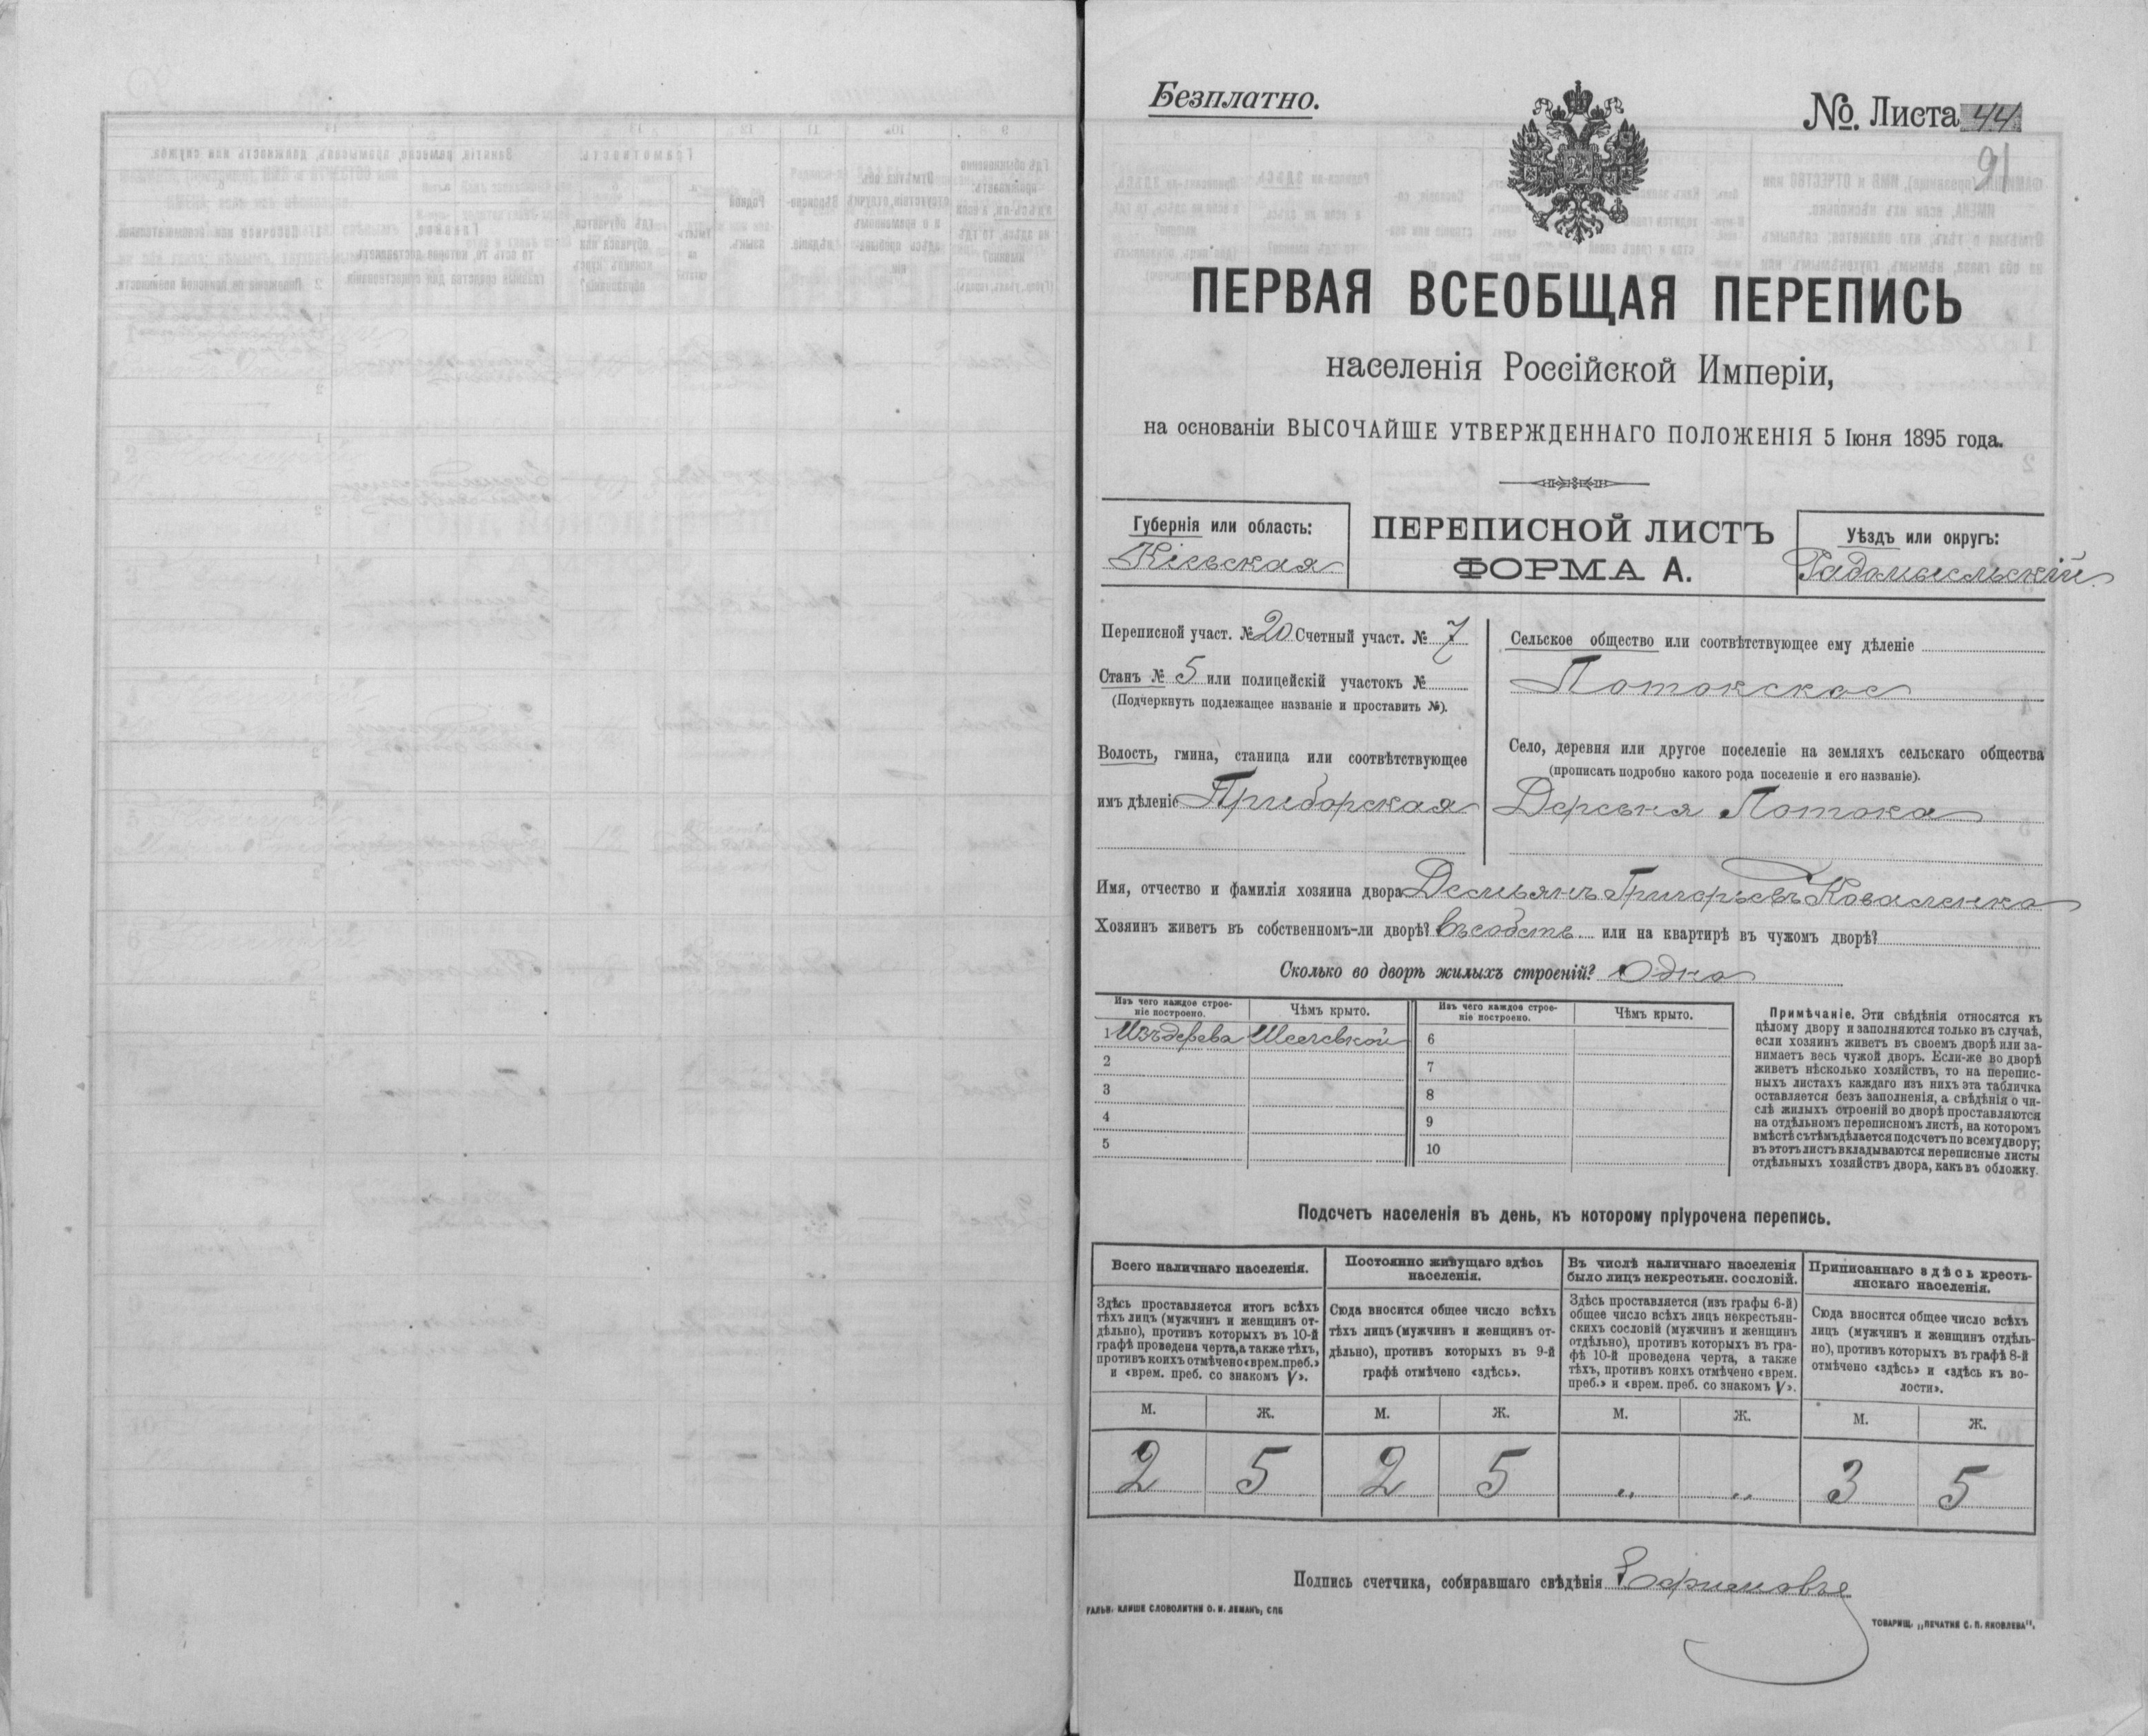 Безплатно.
№. Листа 44
91
ПЕРВАЯ ВСЕОБЩАЯ ПЕРЕПИСЬ
населенія Россійской Имперіи,
на основаніи ВЫСОЧАЙШЕ УТВЕРЖДЕННАГО ПОЛОЖЕНІЯ 5 Іюня 1895 года.
Губернія или область:
Кіевская
ПЕРЕПИСНОЙ ЛИСТЪ
ФОРМА А.
Уѣздъ или округъ:
Радомысльскій
Переписной участ. № 20 Счетный участ. № 7
Станъ № 5 или полицейскій участокъ №
(Подчеркнуть подлежащее названіе и проставить №).
Волость, гмина, станица или соотвѣтствующее
имъ дѣленіе Приборская
Сельское общество или соотвѣтствующее ему дѣленіе
Потокское
Село, деревня или другое поселеніе на земляхъ сельскаго общества
(прописать подробно какого рода поселеніе и его названіе).
Деревня Потока
Имя, отчество и фамилія хозяина двора Демьянъ Григорьевъ Коваленко
Хозяинъ живетъ въ собственномъ-ли дворѣ? Въ собств или на квартирѣ въ чужомъ дворѣ?
Сколько во дворѣ жилыхъ строеній? Одно
Изъ чего каждое строе-
ніе построено.
Чѣмъ крыто.
Изъ чего каждое строе-
ніе построено.
Чѣмъ крыто.
1 Изъ дерева
6
2
7
3
8
4
9
5
10
Примѣчаніе. Эти свѣдѣнія относятся къ
цѣлому двору и заполняются только въ случаѣ,
если хозяинъ живетъ въ своемъ дворѣ или за-
нимаетъ весь чужой дворъ. Если-же во дворѣ
живетъ нѣсколько хозяйствъ, то на перепис-
ныхъ листахъ каждаго изъ нихъ эта табличка
оставляется безъ заполненія, а свѣдѣнія о чи-
слѣ жилыхъ строеній во дворѣ проставляются
на отдѣльномъ переписномъ листѣ, на которомъ
вмѣстѣ съ тѣмъ дѣлается подсчетъ по всему двору;
въ этотъ листъ вкладываются переписные листы
отдѣльныхъ хозяйствъ двора, какъ въ обложку.
Подсчетъ населенія въ день, къ которому пріурочена перепись.
Всего наличнаго населенія.
Здѣсь проставляется итогъ всѣхъ
тѣхъ лицъ (мужчинъ и женщинъ от-
дѣльно), противъ которыхъ въ 10-й
графѣ проведена черта, а также тѣхъ,
противъ коихъ отмѣчено «врем. преб.»
и «врем. преб. со знакомъ V».
Постоянно живущаго здѣсь
населенія.
Сюда вносится общее число всѣхъ
тѣхъ лицъ (мужчинъ и женщинъ от-
дѣльно), противъ которыхъ въ 9-й
графѣ отмѣчено «здѣсь».
Въ числѣ наличнаго населенія
было лицъ некрестьян. сословій.
Здѣсь проставляется (изъ графы 6-й)
общее число всѣхъ лицъ некрестьян-
скихъ сословій (мужчинъ и женщинъ
отдѣльно), противъ которыхъ въ гра-
фѣ 10-й проведена черта, а также
тѣхъ, противъ коихъ отмѣчено «врем.
преб.» и «врем. преб. со знакомъ V».
Приписаннаго здѣсь кресть-
янскаго населенія.
Сюда вносится общее число всѣхъ
лицъ (мужчинъ и женщинъ отдѣль-
но), противъ которыхъ въ графѣ 8-й
отмѣчено «здѣсь» и «здѣсь къ во-
лости».
М. Ж. М. Ж. М. Ж. М. Ж.
2 5 2 5 „ „ 3 5
Подпись счетчика, собиравшаго свѣдѣнія
ГАЛЬВ. КЛИШЕ СЛОВОЛИТНИ О. И. ЛЕМАНЪ, СПБ
ТОВАРИЩ. „ПЕЧАТНЯ С. П. ЯКОВЛЕВА".